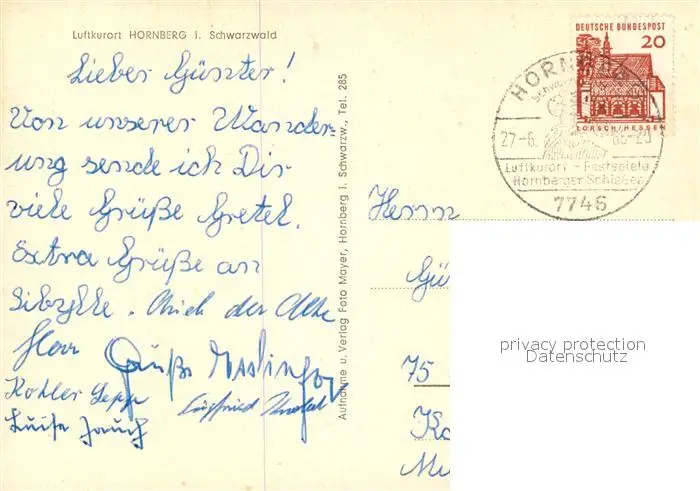 Luftkurort HORNBERG i. Schwarzwald
Lieber Günter!
Von unserer Wander-
ung sende ich Dir
viele Grüße Gretel.
Extra Grüße an
Sibylle. Auch der Alte
Herr
Grüße
Kohler Sepp
Siegfried
Luise Jauch
Aufnahme u. Verlag Foto Mayer, Hornberg i. Schwarzw. Tel. 285
DEUTSCHE BUNDESPOST
20
LORSCH/HESSEN
HORNBERG
27-6.
-20
Luftkurort - Festspiele
Hornberger Schießen
7746
Herrn
Gü
75
Ka
privacy protection
Datenschutz